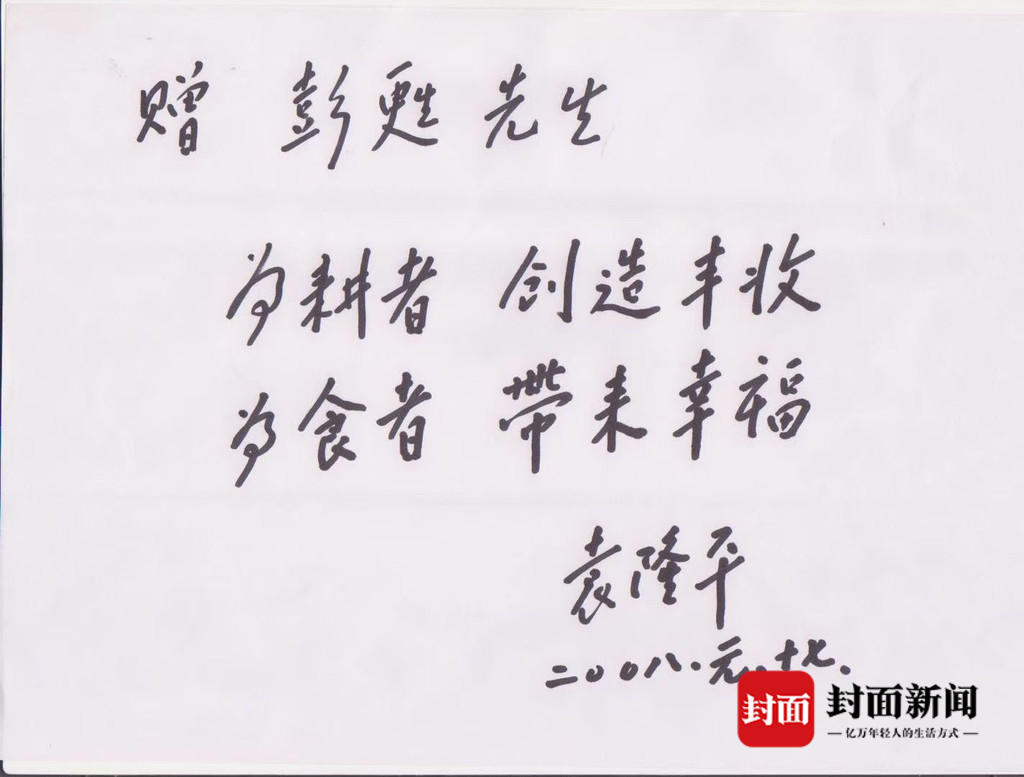 赠 彭甦 先生
为耕者 创造丰收
为食者 带来幸福
袁隆平
二〇〇八.元.十七.
封面 封面新闻
亿万年轻人的生活方式